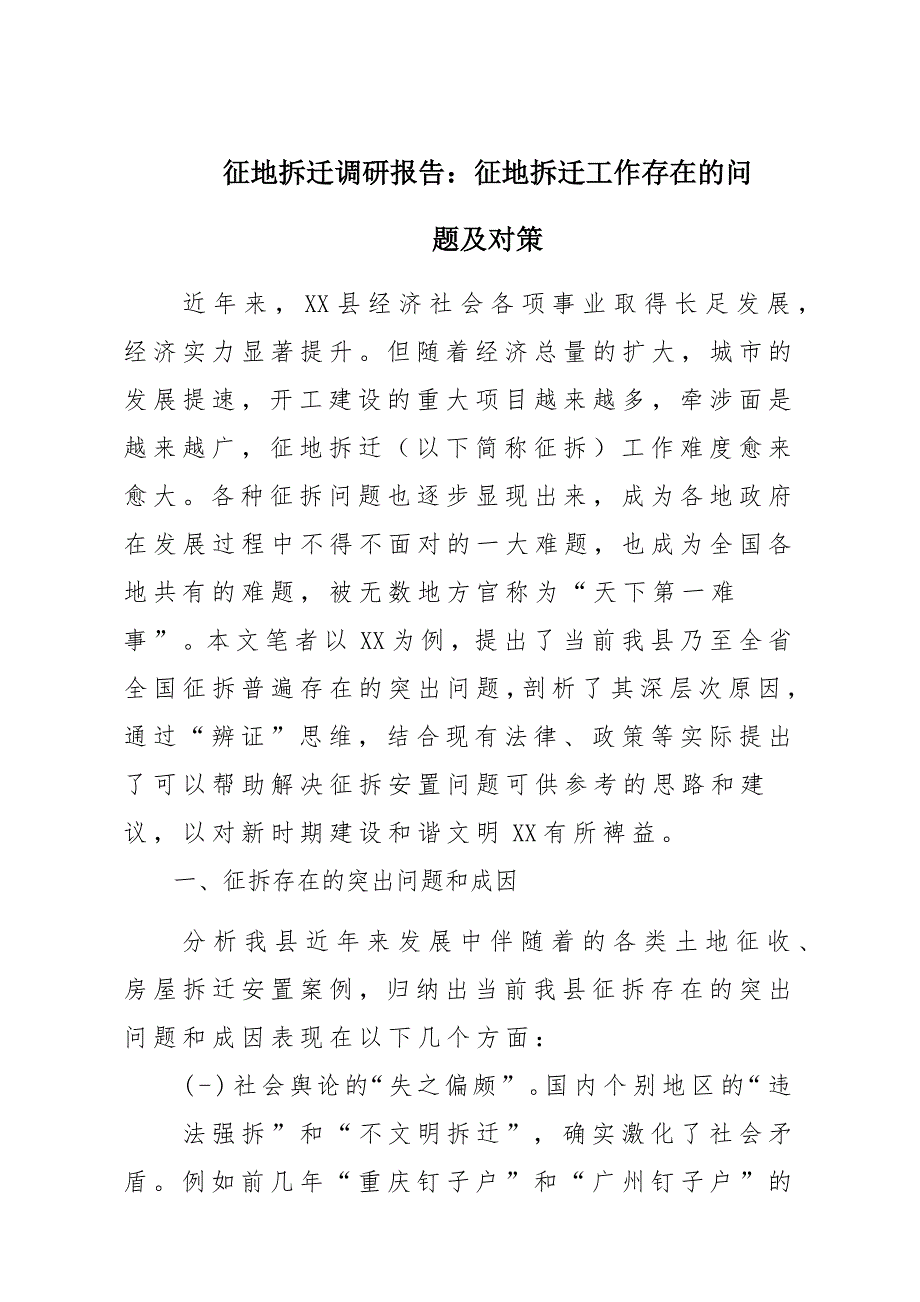 征地拆迁调研报告：征地拆迁工作存在的问
题及对策
近年来，XX县经济社会各项事业取得长足发展，
经济实力显著提升。但随着经济总量的扩大，城市的
发展提速，开工建设的重大项目越来越多，牵涉面是
越来越广，征地拆迁（以下简称征拆）工作难度愈来
愈大。各种征拆问题也逐步显现出来，成为各地政府
在发展过程中不得不面对的一大难题，也成为全国各
地共有的难题，被无数地方官称为“天下第一难
事”。本文笔者以 XX为例，提出了当前我县乃至全省
全国征拆普遍存在的突出问题，剖析了其深层次原因，
通过“辨证”思维，结合现有法律、政策等实际提出
了可以帮助解决征拆安置问题可供参考的思路和建
议，以对新时期建设和谐文明 XX有所裨益。
一、征拆存在的突出问题和成因
分析我县近年来发展中伴随着的各类土地征收、
房屋拆迁安置案例，归纳出当前我县征拆存在的突出
问题和成因表现在以下几个方面：
(-)社会舆论的“失之偏颇”。国内个别地区的“违
法强拆”和“不文明拆迁”，确实激化了社会矛
盾。例如前几年“重庆钉子户”和“广州钉子户”的